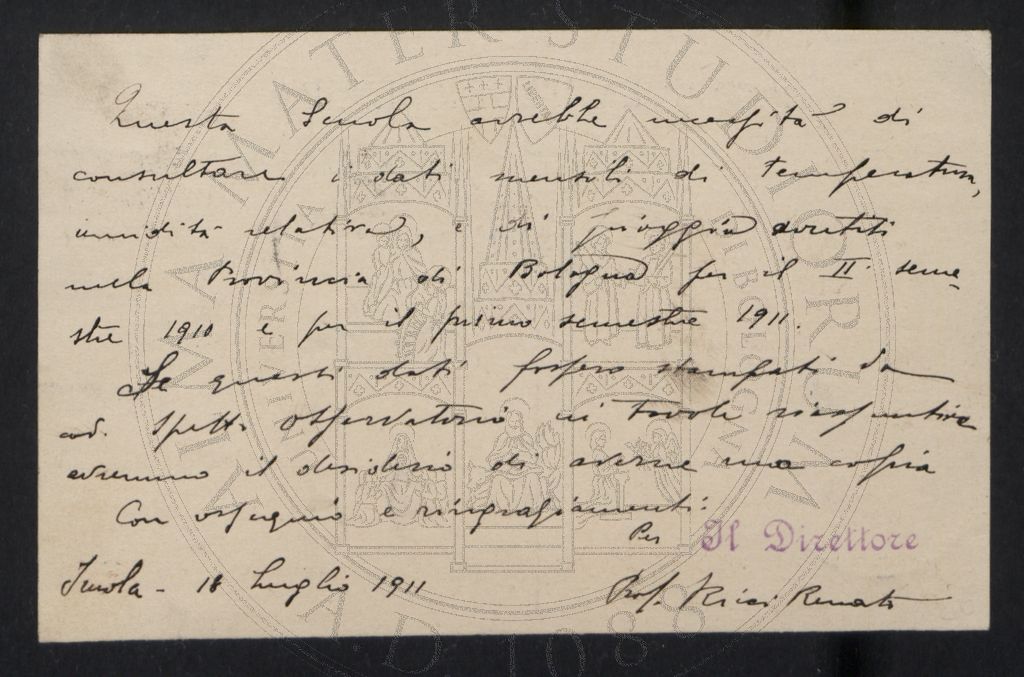 Questa Scuola avrebbe necessità di
consultare i dati mensili di temperatura,
umidità relativa, e di pioggia avutiti
nella Provincia di Bologna per il II seme-
stre 1910 e per il primo semestre 1911.
Se questi dati fossero stampati da
cod. Spett. Osservatorio in tavole riassuntive
avremmo il desiderio di averne una copia
Con ossequio e ringraziamenti.
Per Il Direttore
Imola - 18 Luglio 1911
Prof. Ricci Renato
ALMA MATER STUDIORUM
A.D. 1088